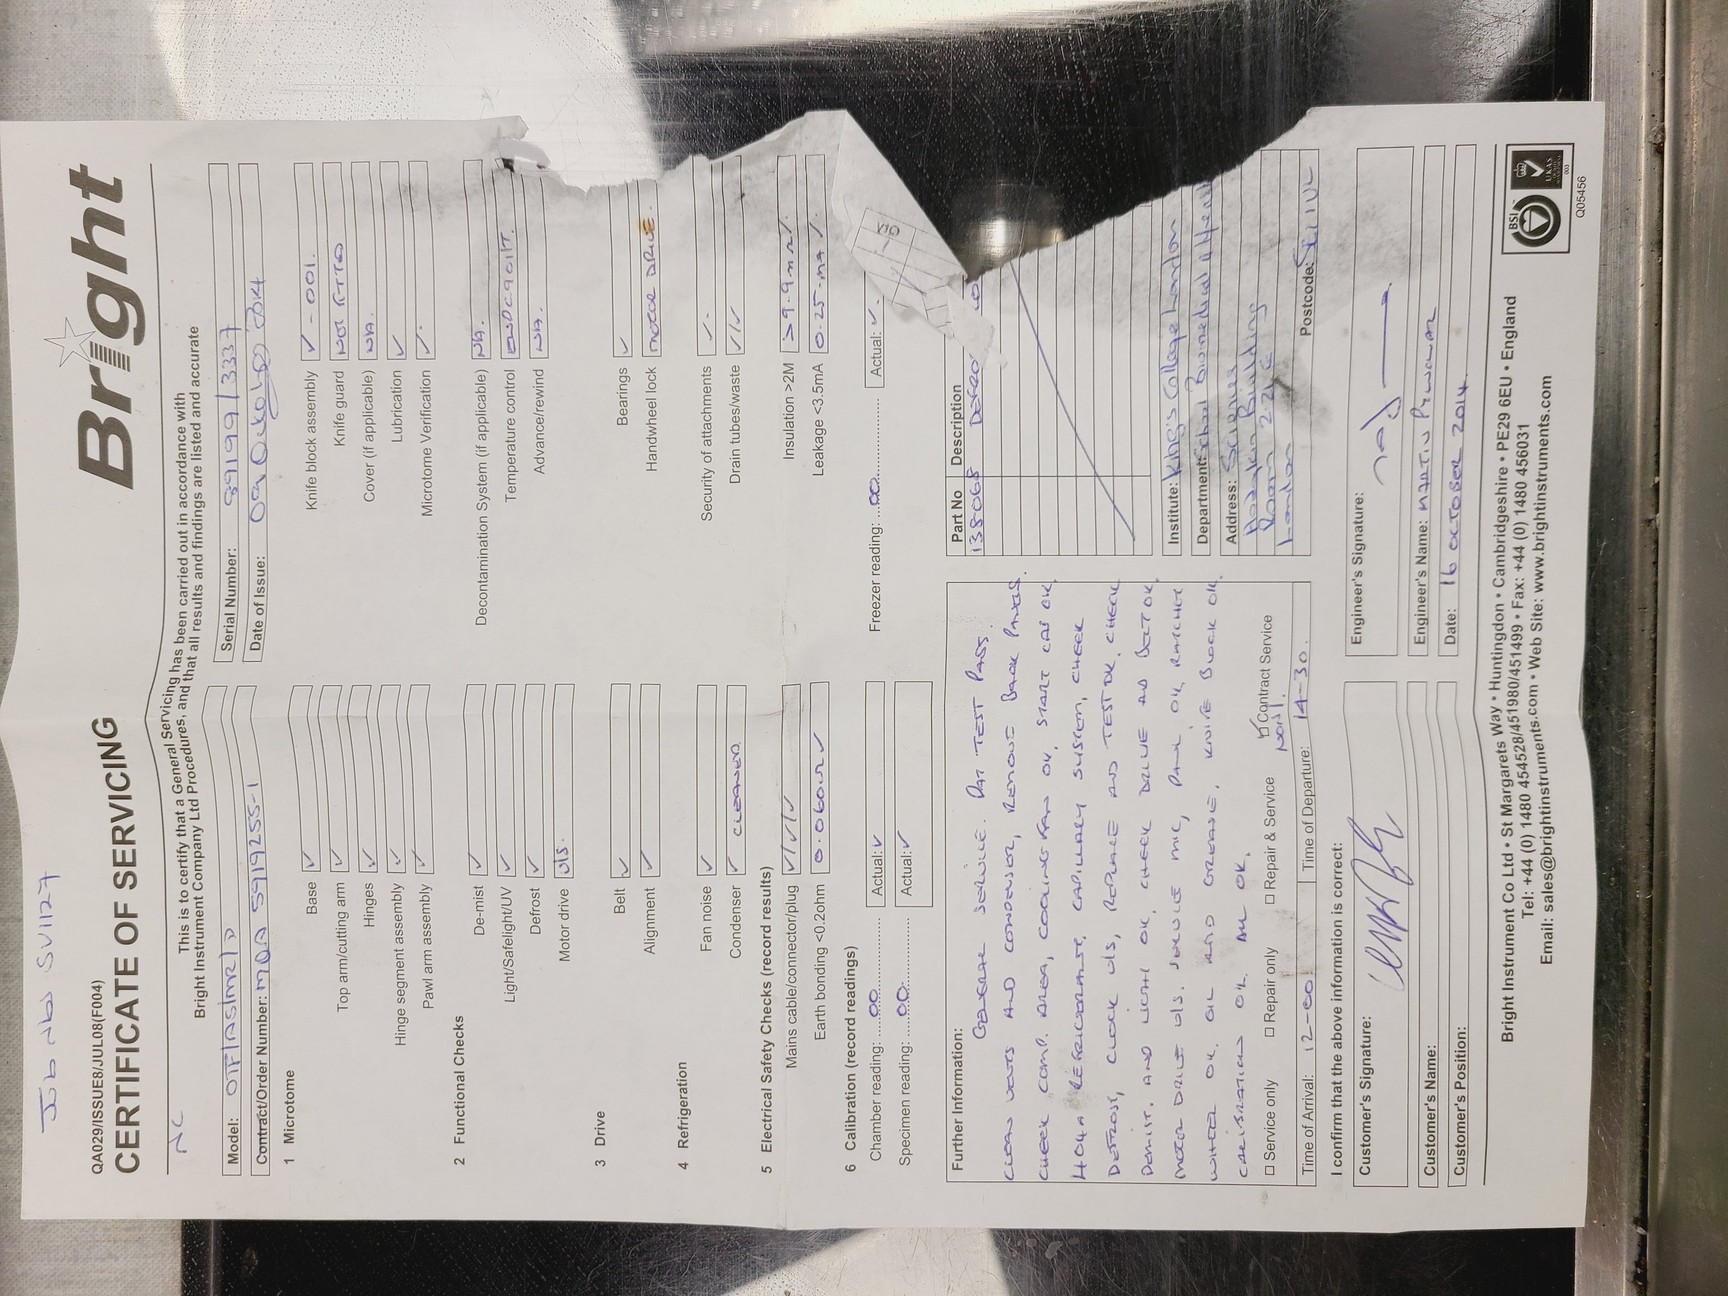 Job No SV1127
QA029/ISSUE8/JUL08(F004)
CERTIFICATE OF SERVICING
Bright
This is to certify that a General Servicing has been carried out in accordance with
Bright Instrument Company Ltd Procedures, and that all results and findings are listed and accurate
NC
Model: OTF/AS/MR/D
Serial Number: 59199/3337
Contract/Order Number: 5919255-1
Date of Issue:
1 Microtome
Base ✓
Knife block assembly ✓ - 001.
Top arm/cutting arm ✓
Knife guard NOT FITTED
Hinges ✓
Cover (if applicable) NA.
Hinge segment assembly ✓
Lubrication ✓
Pawl arm assembly ✓
Microtome Verification ✓.
2 Functional Checks
De-mist ✓
Decontamination System (if applicable) NA.
Light/Safelight/UV ✓
Temperature control
Defrost ✓
Advance/rewind NA.
Motor drive
3 Drive
Belt ✓
Bearings ✓
Alignment ✓
Handwheel lock MOTOR DRIVE.
4 Refrigeration
Fan noise ✓
Security of attachments ✓.
Condenser ✓ CLEANED
Drain tubes/waste ✓/✓
5 Electrical Safety Checks (record results)
Mains cable/connector/plug ✓/✓/✓
Insulation >2M >9.9
Earth bonding <0.2ohm 0.060 ✓
Leakage <3.5mA 0.25 mA ✓.
6 Calibration (record readings)
Chamber reading: .... OO ............ Actual: ✓
Freezer reading: ... OO ............ Actual: ✓.
Specimen reading: .... OO ............ Actual: ✓
Further Information:
GENERAL SERVICE. PAT TEST PASS.
CLEAN VENTS AND CONDENSOR, REMOVE BACK PANELS.
CHECK COMP. AREA, COOLING FAN OK, START CAP OK,
404A REFRIGERANT. CAPILLARY SYSTEM, CHECK
DEFROST, CLOCK REPLACE AND TEST OK. CHECK
DEMIST. AND LIGHT OK, CHECK DRIVE AND OK,
MOTOR DRIVE SERVICE MIC, PAWL OK, RATCHET
WHEEL OK. OIL AND GREASE, KNIFE BLOCK OK,
CALIBRATION OK. ALL OK.
Part No Description
138068 DEFRO
Institute: King's College London
Department: School Biomedical
Address: Sciences
Hodgkin Building
Room 2.21
London
Postcode: SE1 1UL
☐ Service only ☐ Repair only ☐ Repair & Service ☑ Contract Service
Time of Arrival: 12-00
Time of Departure: 14-30.
I confirm that the above information is correct:
Customer's Signature:
Engineer's Signature:
Customer's Name:
Engineer's Name: MARTIN
Customer's Position:
Date: 16 OCTOBER 2014
Bright Instrument Co Ltd • St Margarets Way • Huntingdon • Cambridgeshire • PE29 6EU • England
Tel: +44 (0) 1480 454528/451980/451499 • Fax: +44 (0) 1480 456031
Email: sales@brightinstruments.com • Web Site: www.brightinstruments.com
BSI
UKAS
003
Q05456